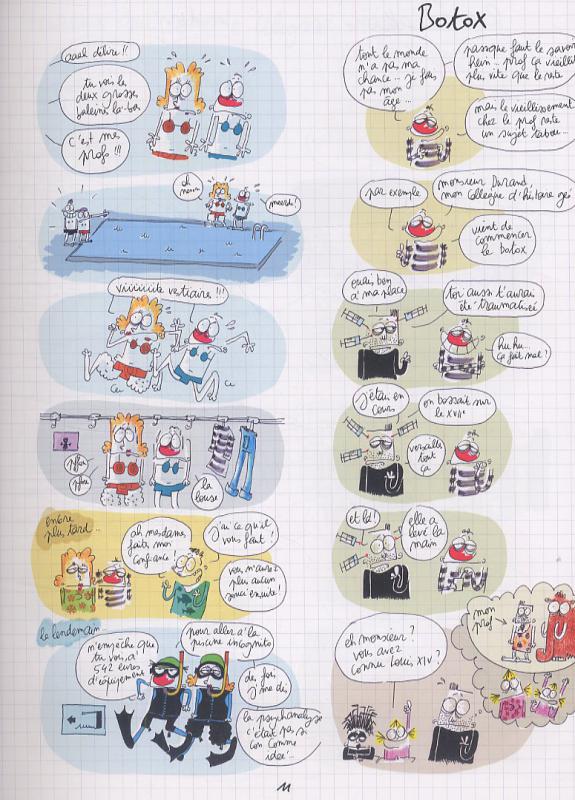 Botox
aaah délire !!
tu vois les
deux grosses
baleines là-bas
c'est mes
profs !!!
oh
merde !
viiiiiiite vestiaires !!!
pffou
pffou
la
louse
encore
plus tard...
ah mesdames,
faites moi
confiance !
j'ai ce qu'il
vous faut !
vous n'aurez
plus aucun
souci ensuite !
le lendemain
n'empêche que
tu vois, à
542 euros
d'équipement
pour aller à la
piscine incognito
des fois
j'me dis
la psychanalyse
c'était pas si
con comme
idée...
11
tout le monde
n'a pas ma
chance... je fais
pas mon
âge...
passque faut le savoir
hein... prof ça vieillit
plus vite que le reste
mais le vieillissement
chez le prof reste
un sujet tabou...
par exemple
monsieur Durand,
mon collègue d'histoire géo
vient de
commencer
le botox
ouais ben
à ma place
toi aussi t'aurais
été traumatisé
hu hu...
ça fait mal ?
j'étais en
cours
on bossait sur
le XVIIe
versailles
tout
ça
et là !
elle a
levé la
main
eh monsieur ?
vous avez
connu Louis XIV ?
mon
prof